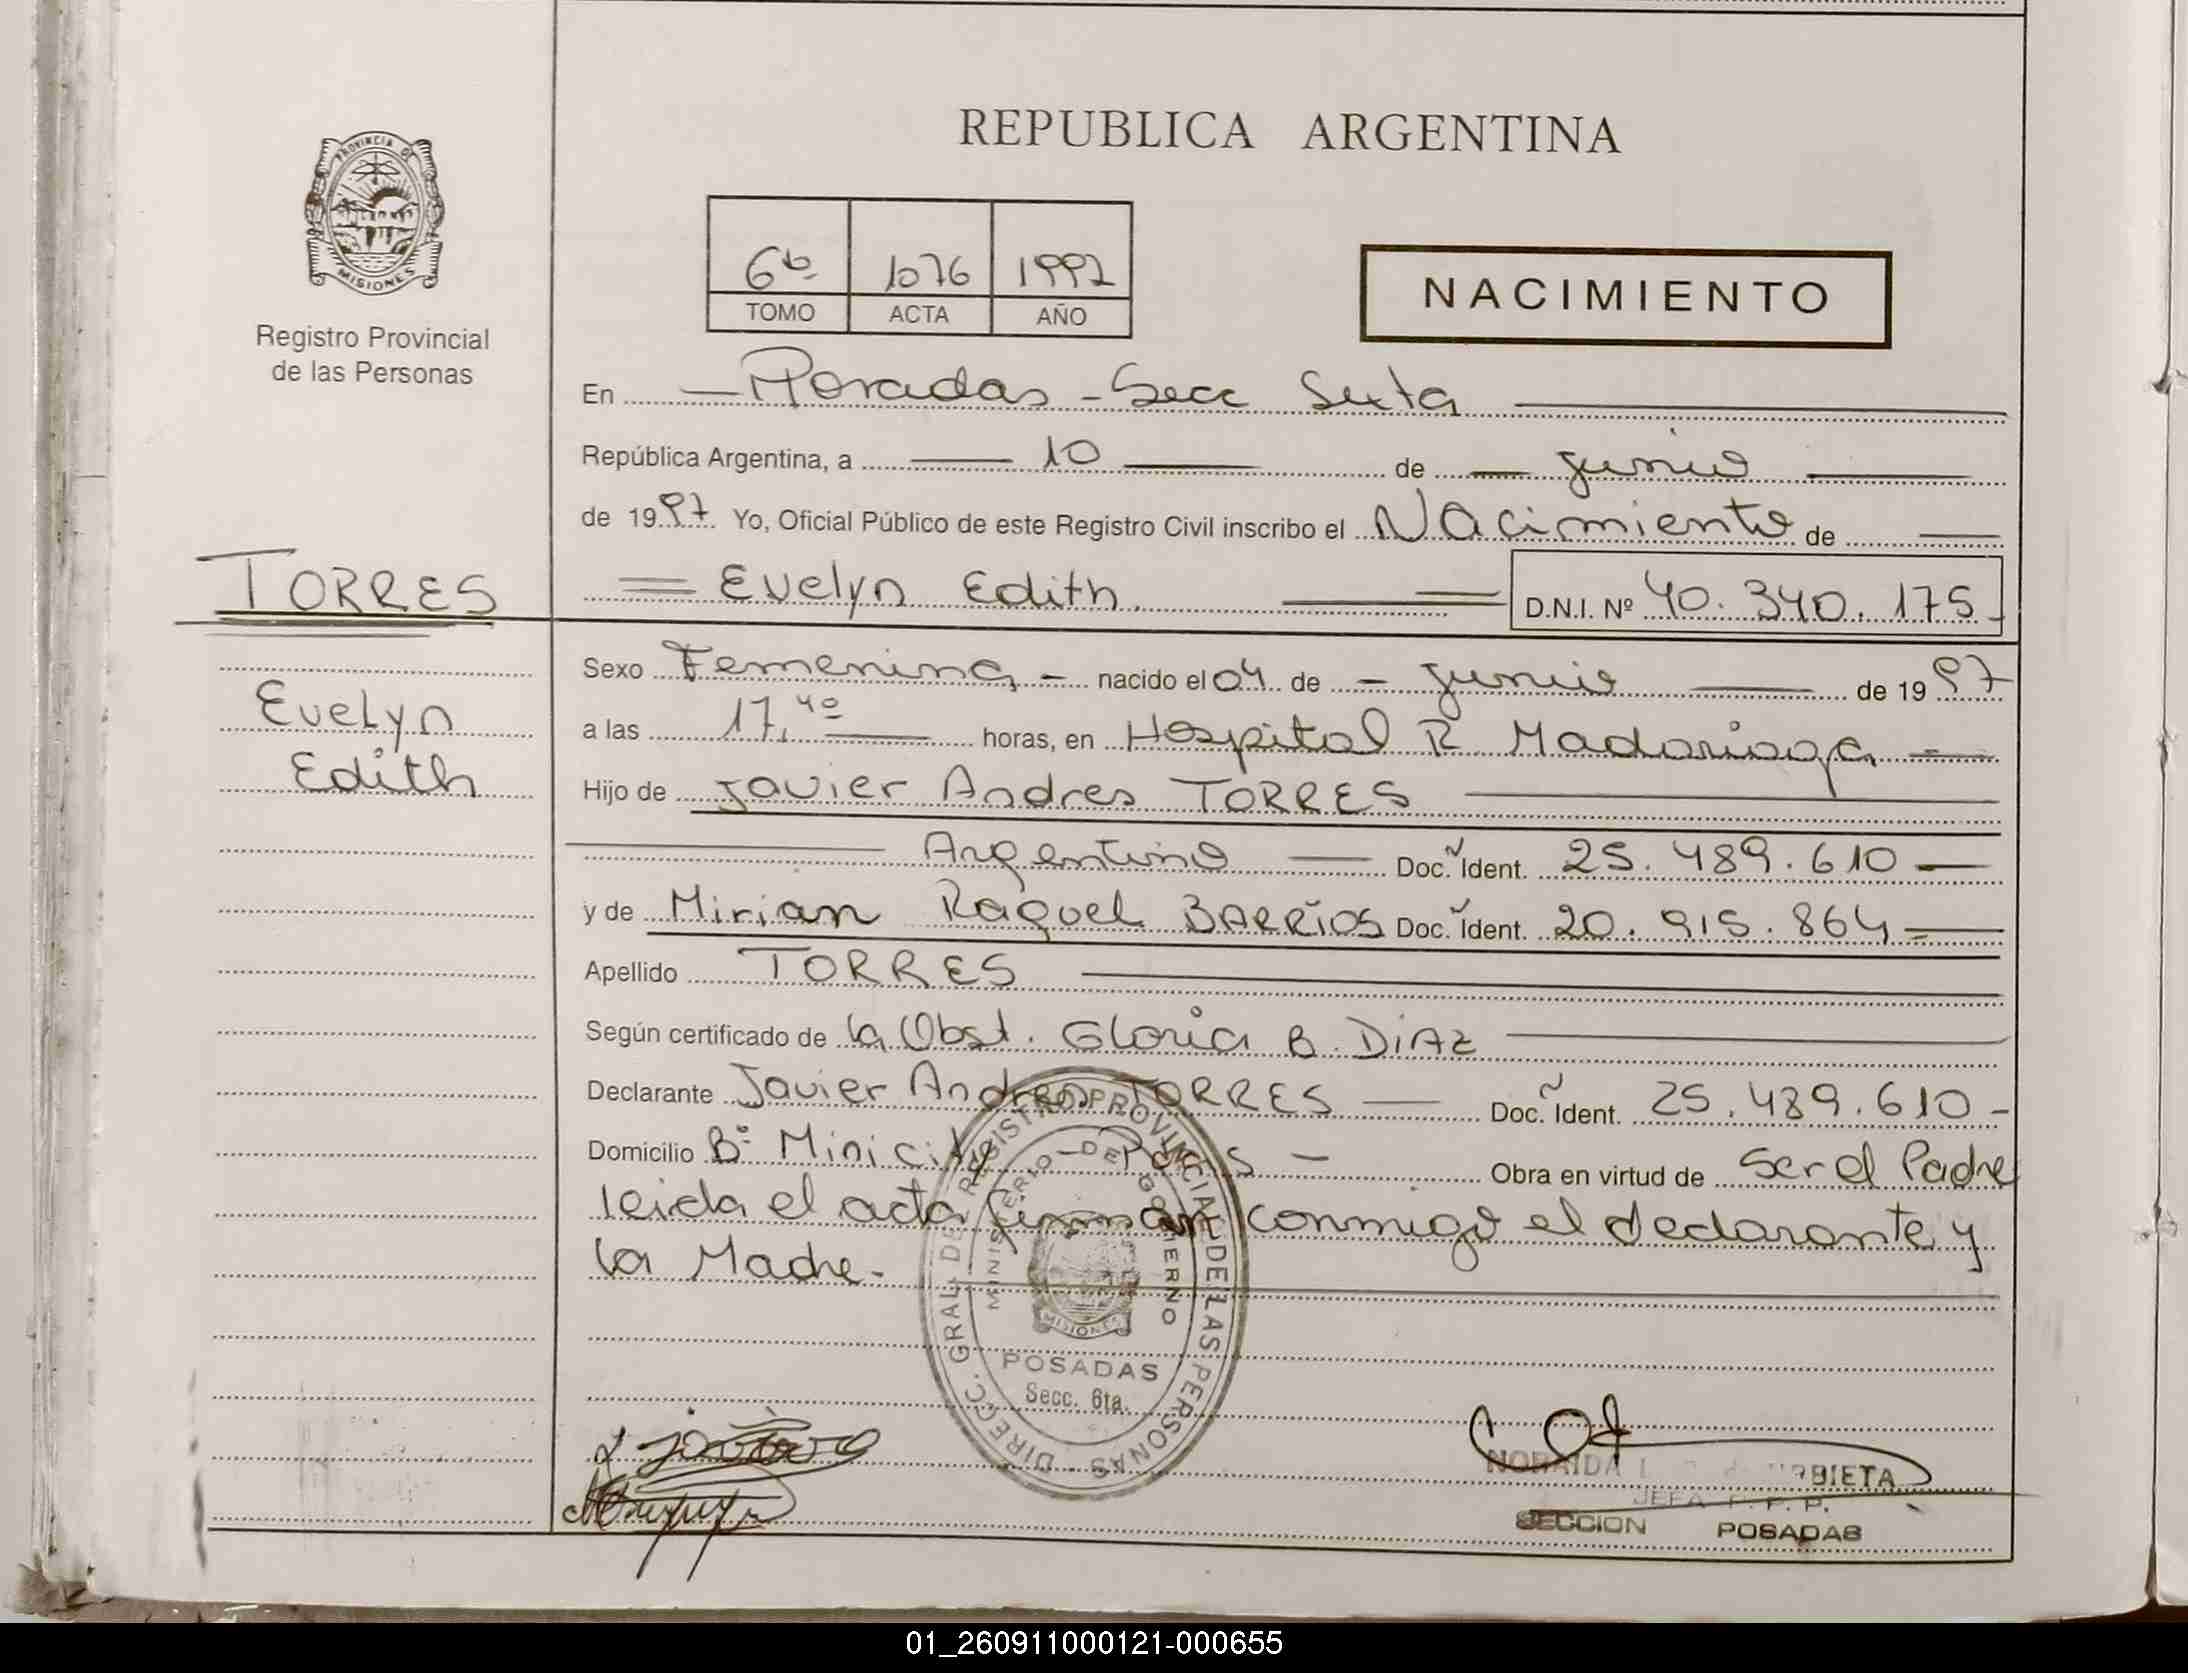 REPUBLICA ARGENTINA
PROVINCIA DE
MISIONES
Registro Provincial
de las Personas
6to 1076 1997
TOMO ACTA AÑO
NACIMIENTO
En Posadas - Secc Sexta
República Argentina, a 10 de junio
de 1997. Yo, Oficial Público de este Registro Civil inscribo el Nacimiento de
TORRES
Evelyn Edith. D.N.I. Nº 40.340.175-
Evelyn
Edith
Sexo Femenina - nacido el 04 de - junio de 1997
a las 17,40 horas, en Hospital R Madariaga
Hijo de Javier Andres TORRES
Argentino Doc. Ident. 25.489.610
y de Mirian Raquel BARRIOS Doc. Ident. 20.915.864
Apellido TORRES
Según certificado de la Obst. Gloria B. DIAZ
Declarante Javier Andres TORRES Doc. Ident. 25.489.610-
Domicilio Bº Mini city - Pdas - Obra en virtud de ser el Padre
leida el acta firman conmigo el declarante y
la Madre.-
DIRECC. GRAL. DE REGISTRO PROVINCIAL DE LAS PERSONAS
MINISTERIO DE GOBIERNO
MISIONES
POSADAS
Secc. 6ta.
NORAIDA BIETA
JEFA P. P.
SECCION POSADAS
01_260911000121-000655